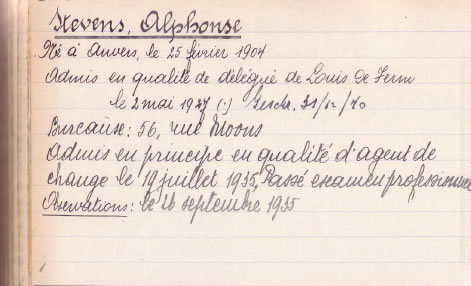 Stevens, Alphonse
Né à Anvers, le 25 février 1904
Admis en qualité de délégué de Louis de
le 2 mai 1927 (.) Geschr. 31/12/40
Bureaux: 56, rue Moons
Admis en principe en qualité d'agent de
change le 19 juillet 1935, Passé examen professionnel
Observations: le 16 septembre 1935